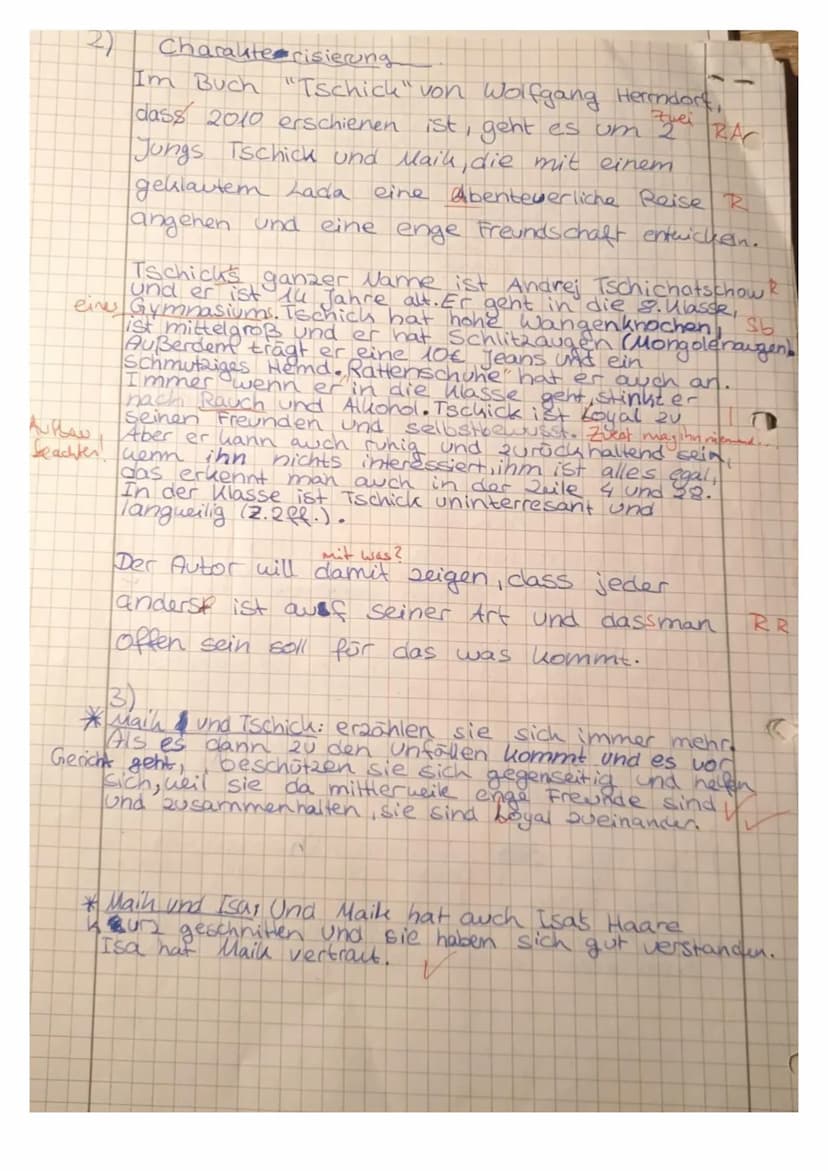 2) Charakterisierung
Im Buch "Tschick" von Wolfgang Herrndorf,
dass 2010 erschienen ist, geht es um 2 zwei RA
Jungs Tschick und Maik, die mit einem
geklautem Lada eine Abenteuerliche Reise R
angehen und eine enge Freundschaft entwickeln.
Tschick's ganzer Name ist Andrej Tschichatschow R
und er ist 14 Jahre alt. Er geht in die 8. Klasse,
eines Gymnasiums. Tschick hat hohe Wangenknochen, Sb
ist mittelgroß und er hat Schlitzaugen (Mongolenaugen)
Außerdem trägt er eine 10€ Jeans und ein
schmutziges Hemd. "Rattenschuhe" hat er auch an.
Immer wenn er in die Klasse geht, stinkt er
nach Rauch und Alkohol. Tschick ist Loyal zu
seinen Freunden und selbstbewusst. Zwar mag ihn niemand...
Aufbau beachten! Aber er kann auch ruhig und zurückhaltend sein,
wenn ihn nichts interessiert, ihm ist alles egal,
das erkennt man auch in der Zeile 4 und 28.
In der Klasse ist Tschick uninterresant und
langweilig (Z.2ff.).
mit was?
Der Autor will damit zeigen, dass jeder
anderst ist auf seiner Art und dassman RR
offen sein soll für das was kommt.
3)
* Maik und Tschick: erzählen sie sich immer mehr.
Als es dann zu den Unfällen kommt und es vor
Gericht geht, beschützen sie sich gegenseitig und helfen
sich, weil sie da mittlerweile enge Freunde sind
und zusammenhalten, sie sind Loyal zueinander.
* Maik und Isa, Und Maik hat auch Isas Haare
kurz geschnitten und sie haben sich gut verstanden.
Isa hat Maik vertraut.